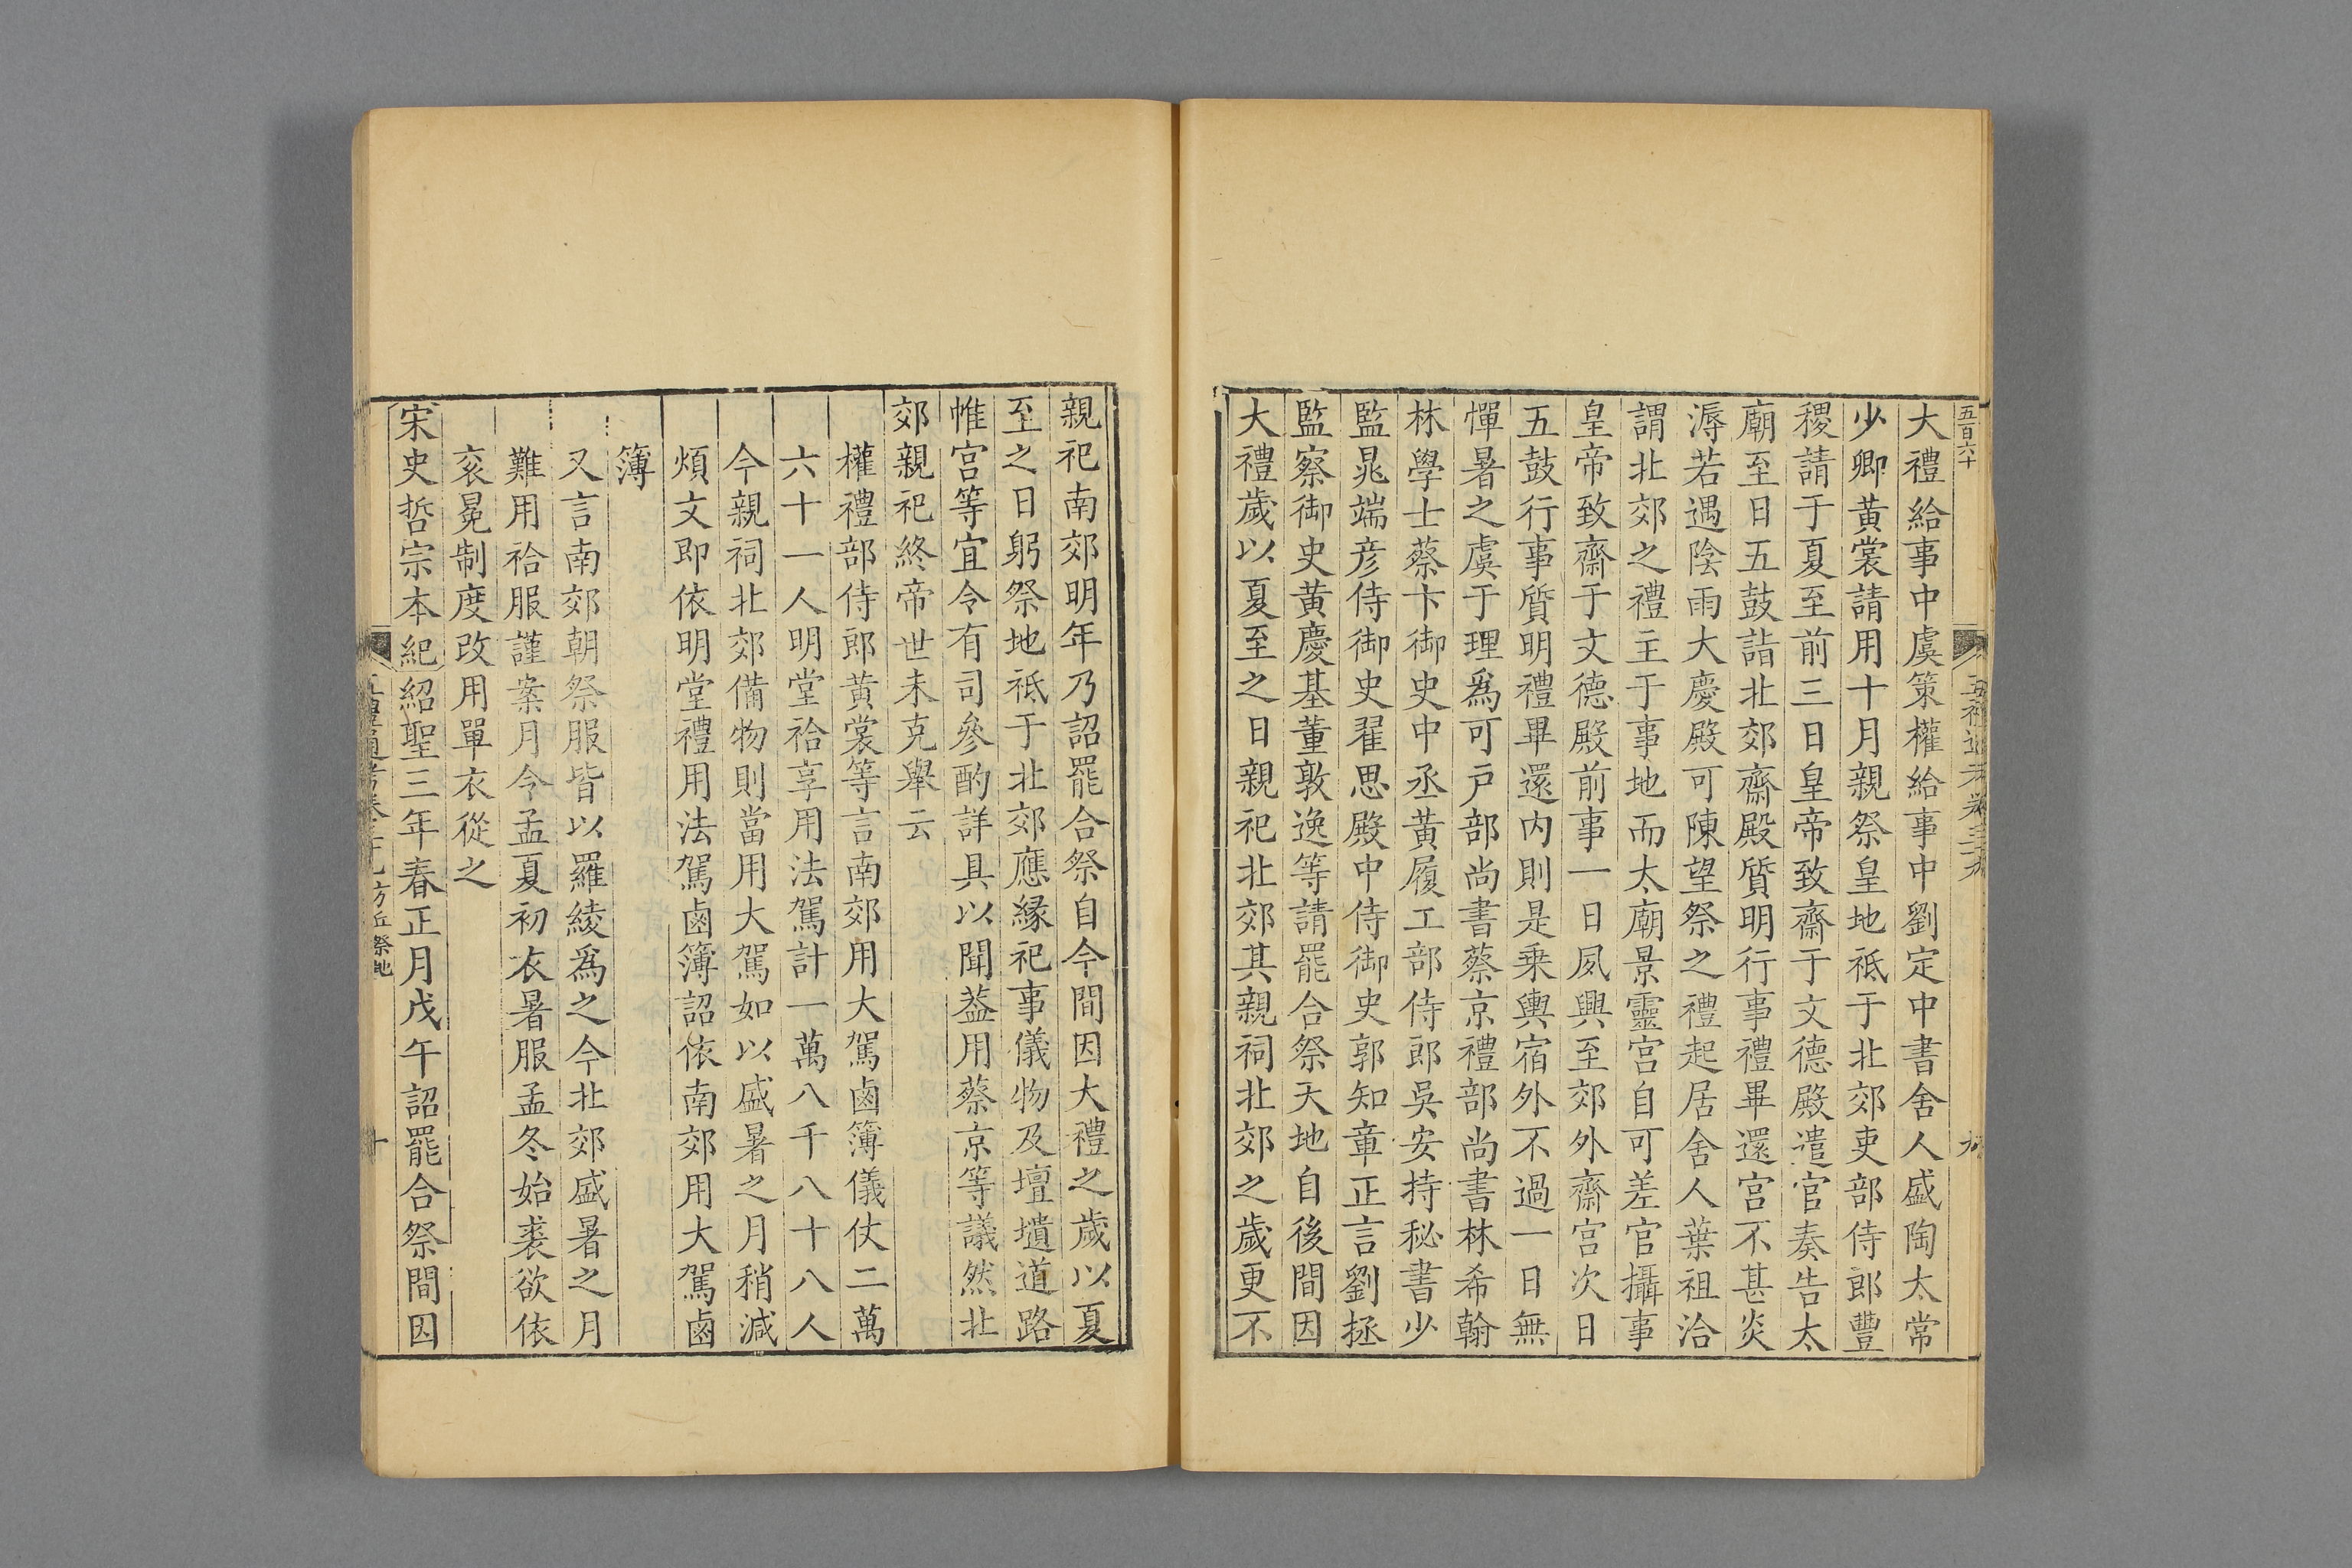 五百六十
大禮給事中虞策權給事中劉定中書舍人盛陶太常
少卿黃裳請用十月親祭皇地祗于北郊吏部侍郎豐
稷請于夏至前三日皇帝致齋于文德殿遣官奏告太
廟至日五鼓詣北郊齋殿質明行事禮畢還宮不甚炎
溽若遇陰雨大慶殿可陳望祭之禮起居舍人葉祖洽
謂北郊之禮主于事地而太廟景靈宮自可差官攝事
皇帝致齋于文德殿前事一日夙興至郊外齋宮次日
五鼓行事質明禮畢還內則是乗輿宿外不過一日無
憚暑之虞于理爲可戶部尚書蔡京禮部尚書林希翰
林學士蔡卞御史中丞黃履工部侍郎吳安持秘書少
監晁端彦侍御史翟思殿中侍御史郭知章正言劉拯
監察御史黃慶基董敦逸等請罷合祭天地自後間因
大禮歲以夏至之日親祀北郊其親祠北郊之歲更不
親祀南郊明年乃詔罷合祭自今間因大禮之歲以夏
至之日躬祭地祗于北郊應縁祀事儀物及壇壝道路
帷宮等宜令有司參酌詳具以聞葢用蔡京等議然北
郊親祀終帝世未克舉云
權禮部侍郎黃裳等言南郊用大駕鹵簿儀仗二萬
六十一人明堂祫享用法駕計一萬八千八十八人
今親祠北郊備物則當用大駕如以盛暑之月稍減
煩文即依明堂禮用法駕鹵簿詔依南郊用大駕鹵
簿
又言南郊朝祭服皆以羅綾爲之今北郊盛暑之月
難用袷服謹案月令孟夏初衣暑服孟冬始裘欲依
衮冕制度改用單衣從之
宋史哲宗本紀紹聖三年春正月戊午詔罷合祭間因
方丘祭地
十